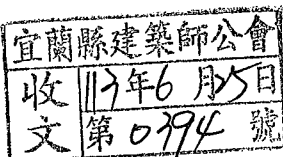 宜蘭縣建築師公會
收文 113年6月25日
第0394號